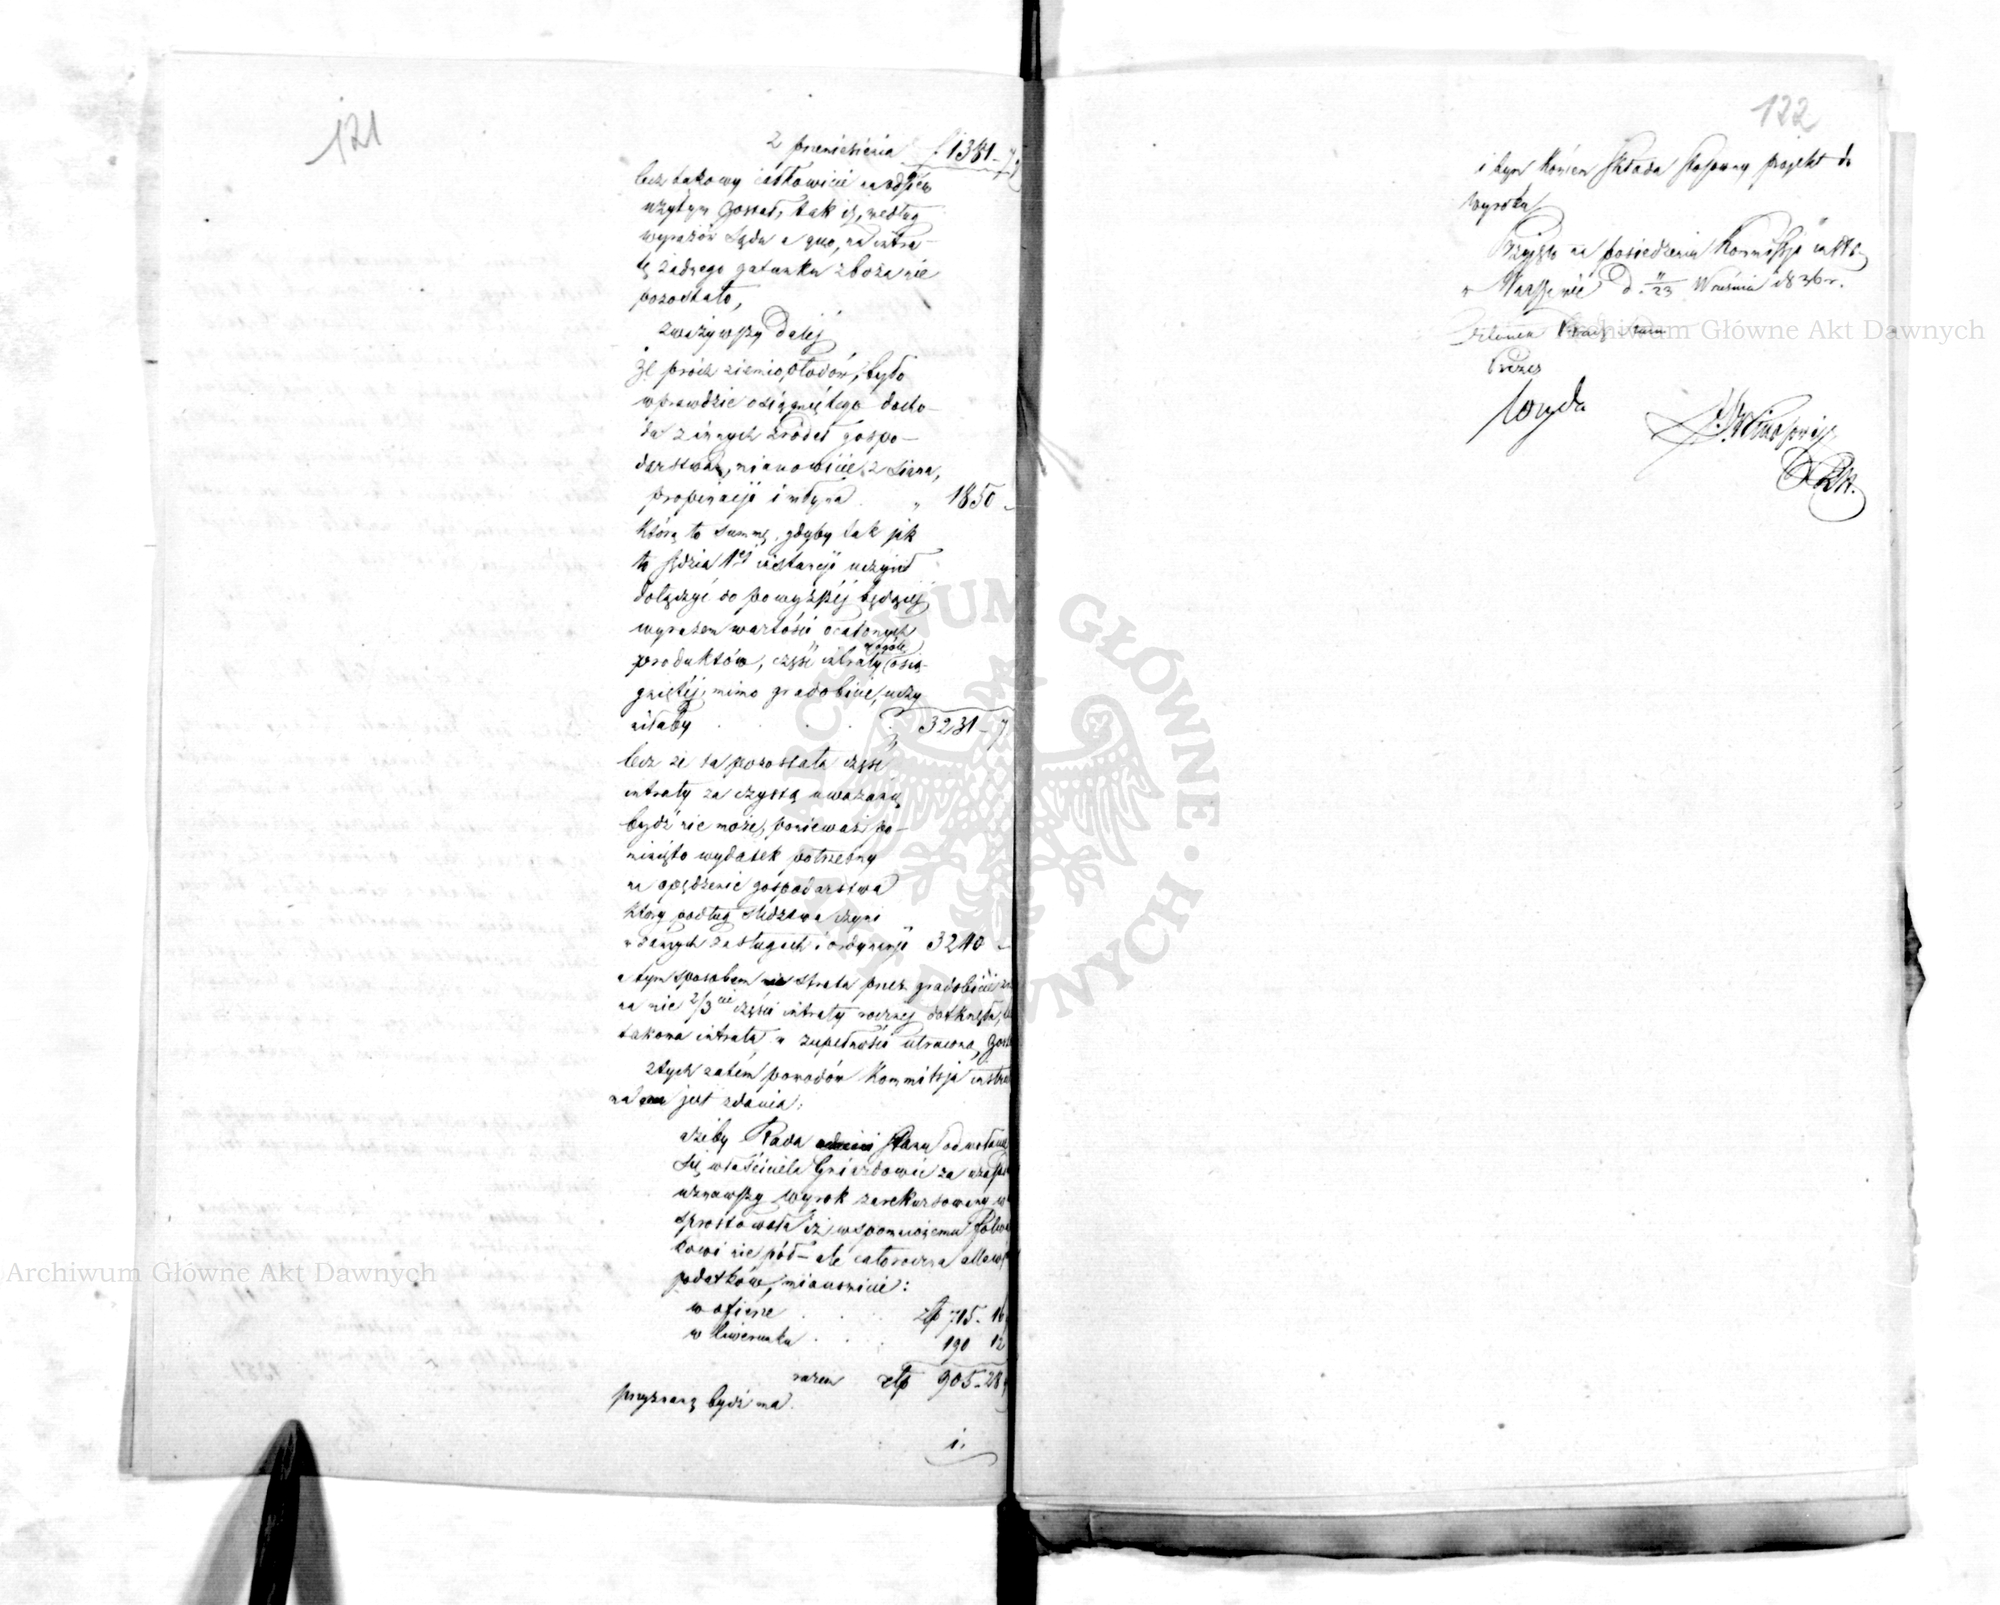 121
z przeniesienia f. 1381 - 7
lecz takowy całkowicie na odsiew
użytym został, tak iż, według
wyrazów Sądu a quo, na intra-
tę żadnego gatunku zboża nie
pozostało,
zważywszy dalej
że prócz ziemiopłodów, było
wprawdzie osiągniętego docho-
du z innych źródeł gospo-
darstwa, mianowicie z siana,
propinacji i młyna . „ 1850 -
którą to summę, gdyby tak jak
to sędzia 1ej instancji uczynił
dołączyć do powyższej będącej
wyrazem wartości ocalonych
produktów, część intraty ogółu osią-
gniętej, mimo gradobicie, uczy
niłaby . . . . 3231 - 7
lecz że ta pozostała część
intraty za czystą uważaną
bydź nie może, ponieważ po-
niosło wydatek potrzebny
na opędzenie gospodarstwa
który podług śledztwa czyni
w samych zasługach i ordynarji 3240 -
a tym sposobem strata przez gradobicie
na nie 2/3cie części intraty rocznej dotknęła,
takowa intrata w zupełności utracona
z tych zatem powodów Kommissja
jest zdania:
ażeby Rada Stanu odwołanie
się właściciela Gniazdowic za
uznawszy wyrok zarekursowany
sprostowała iż wspomnionemu
kowi nie pół- ale całoroczna
podatków, mianowicie:
w ofierze . . . złp 715. 16
w liwerunku . . . 190 12
razem złp 905 - 28
przyznaną bydź ma.
i.
122
i tym końcem składa stosowny projekt do
wyroku
Przyjęto na posiedzeniu Kommissji
w Warszawie d. 11/23 Września 1836 r.
Członek Rady Stanu
Prezes
Archiwum Główne Akt Dawnych
Archiwum Główne Akt Dawnych
ARCHIWUM GŁÓWNE • AKT DAWNYCH •